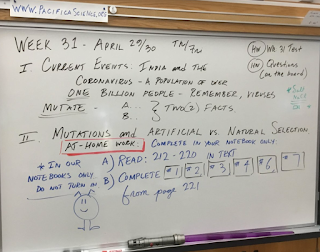 www.PacificaScience.org
WEEK 31 - APRIL 29/30 TM/7M
I. CURRENT EVENTS: INDIA AND THE
CORONAVIRUS - A POPULATION OF OVER
ONE BILLION PEOPLE - REMEMBER, VIRUSES
MUTATE - A. ..
B. .. } TWO(2) FACTS
HW WK 31 TEST
HW QUESTIONS
(on the board)
II. MUTATIONS and ARTIFICIAL vs NATURAL SELECTION
AT-HOME WORK: COMPLETE IN YOUR NOTEBOOK ONLY:
* IN OUR NOTEBOOKS ONLY. DO NOT TURN IN
A) READ: 212-220 IN TEXT
B) COMPLETE #1 #2 #3 #4 #5 #6 #7
from page 221